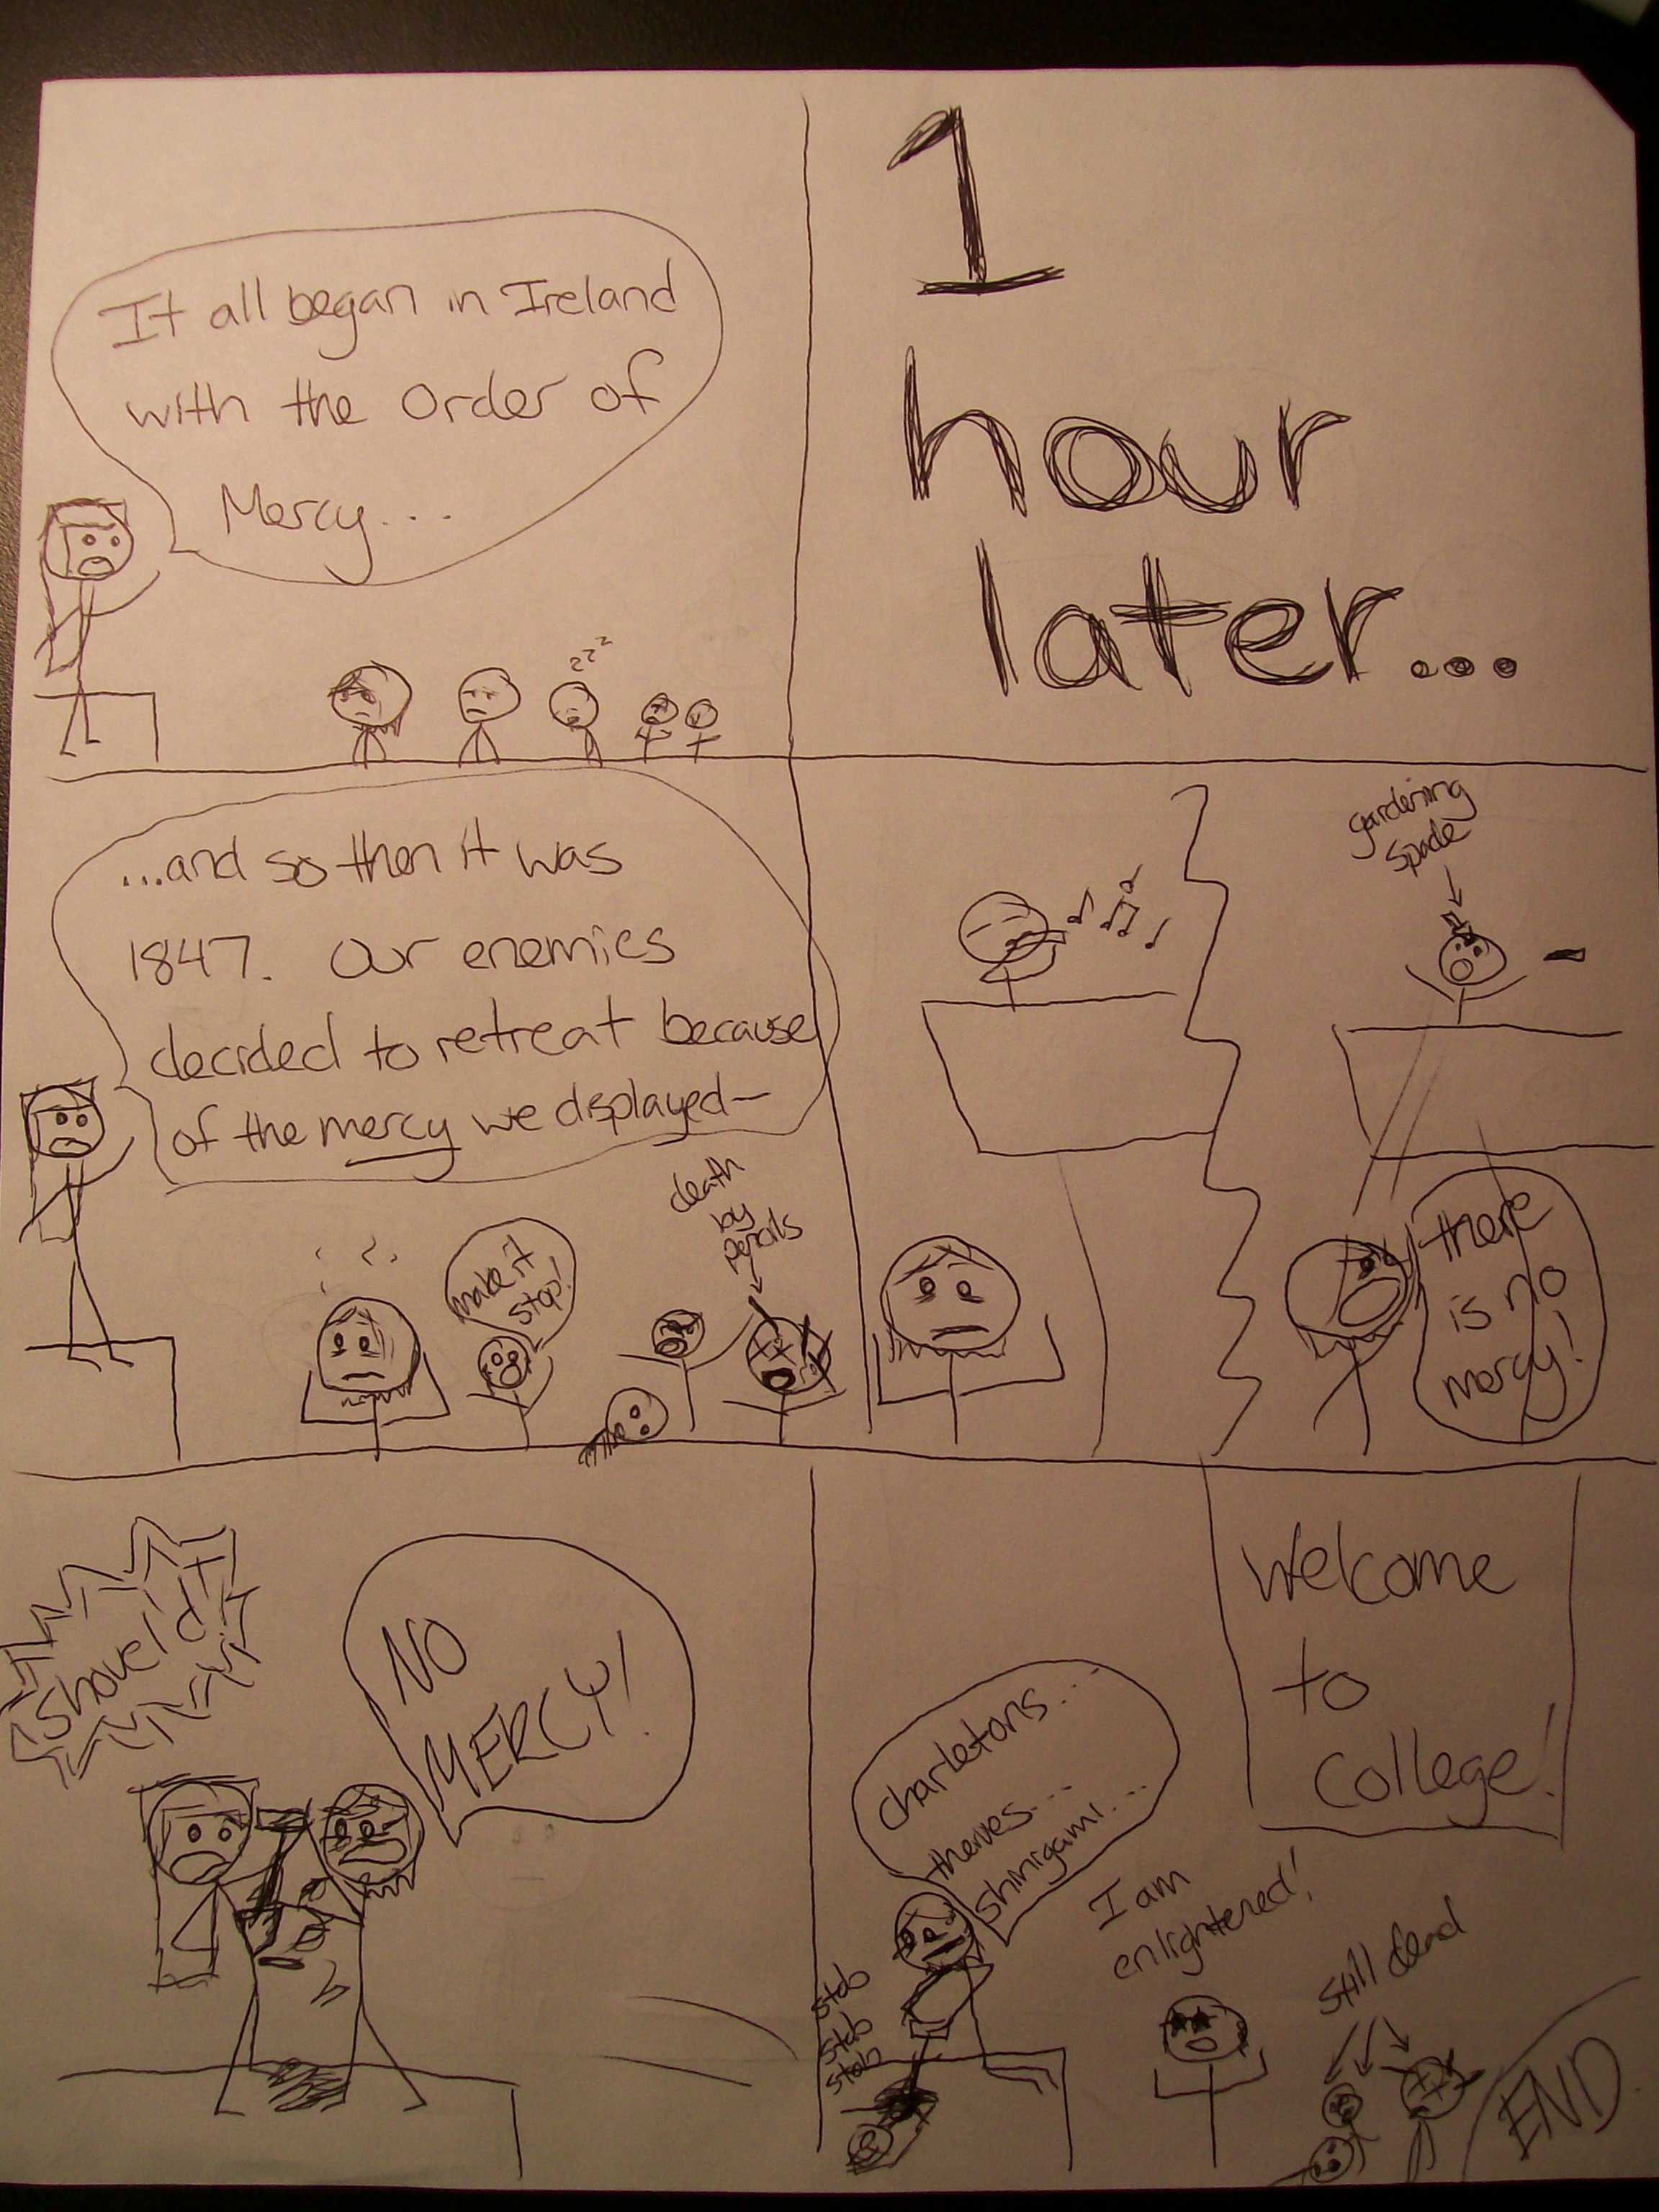 It all began in Ireland
with the Order of
Mercy...
zzz
1
hour
later...
...and so then it was
1847. Our enemies
decided to retreat because
of the mercy we displayed—
make it
stop!
death
by
pencils
gardening
spade
there
is no
mercy!
Shovel'd!
NO
MERCY!
Welcome
to
College!
Charletons...
theives...
Shinigami...
stab
stab
stab
I am
enlightened!
still dead
END